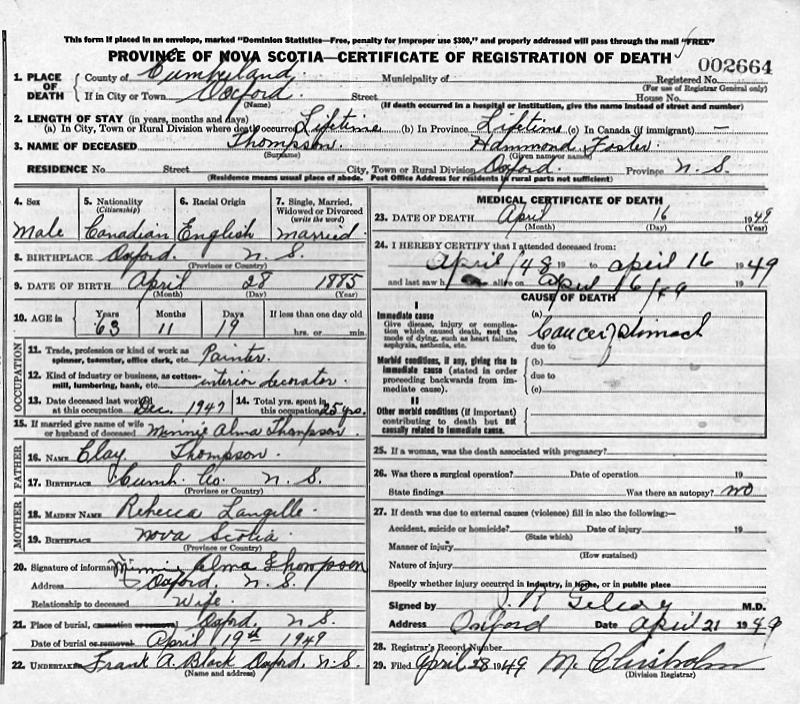 This form if placed in an envelope, marked "Dominion Statistics—Free, penalty for improper use $300," and properly addressed will pass through the mail "FREE"
PROVINCE OF NOVA SCOTIA—CERTIFICATE OF REGISTRATION OF DEATH
002664
1. PLACE OF DEATH
County of Cumberland Municipality of Registered No.
(For use of Registrar General only)
If in City or Town Oxford Street House No.
(Name) (If death occurred in a hospital or institution, give the name instead of street and number)
2. LENGTH OF STAY (in years, months and days)
(a) In City, Town or Rural Division where death occurred Lifetime (b) In Province Lifetime (c) In Canada (if immigrant) —
3. NAME OF DECEASED Thompson Hammond Foster
(Surname) (Given name or names)
RESIDENCE No Street City, Town or Rural Division Oxford. Province N.S.
(Residence means usual place of abode. Post Office Address for residents in rural parts not sufficient)
4. Sex
Male
5. Nationality
(Citizenship)
Canadian
6. Racial Origin
English
7. Single, Married,
Widowed or Divorced
(write the word)
married
8. BIRTHPLACE Oxford. N.S.
(Province or Country)
9. DATE OF BIRTH April 28 1885
(Month) (Day) (Year)
10. AGE in Years Months Days If less than one day old
63 11 19 hrs. or min.
OCCUPATION
11. Trade, profession or kind of work as Painter.
spinner, teamster, office clerk, etc.
12. Kind of industry or business, as cotton-
mill, lumbering, bank, etc. interior decorator.
13. Date deceased last worked
at this occupation Dec. 1947
14. Total yrs. spent in
this occupation 25 yrs.
15. If married give name of wife
or husband of deceased Minnie Alma Thompson.
FATHER
16. NAME Clay Thompson.
17. BIRTHPLACE Cumb. Co. N.S.
(Province or Country)
MOTHER
18. MAIDEN NAME Rebecca Langille.
19. BIRTHPLACE Nova Scotia.
(Province or Country)
20. Signature of informant Minnie Alma Thompson
Address Oxford. N.S.
Relationship to deceased Wife.
21. Place of burial, cremation or removal Oxford. N.S.
Date of burial or removal April 19th 1949
22. UNDERTAKER Frank A. Black Oxford. N.S.
(Name and address)
MEDICAL CERTIFICATE OF DEATH
23. DATE OF DEATH April 16 1949
(Month) (Day) (Year)
24. I HEREBY CERTIFY that I attended deceased from:
April/48 19 to april 16 1949
and last saw h alive on April 16/49
CAUSE OF DEATH
I
Immediate cause
Give disease, injury or complication which caused death, not the mode of dying, such as heart failure, asphyxia, asthenia, etc.
(a) Cancer of stomach
due to
Morbid conditions, if any, giving rise to immediate cause (stated in order proceeding backwards from immediate cause).
(b)
due to
(c)
II
Other morbid conditions (if important) contributing to death but not causally related to immediate cause.
25. If a woman, was the death associated with pregnancy?
26. Was there a surgical operation? Date of operation 19
State findings Was there an autopsy? no
27. If death was due to external causes (violence) fill in also the following:—
Accident, suicide or homicide? Date of injury 19
(State which)
Manner of injury
(How sustained)
Nature of injury
Specify whether injury occurred in industry, in home, or in public place
Signed by J. R. Gilroy M.D.
Address Oxford Date april 21 1949
28. Registrar's Record Number
29. Filed April 28 1949 M. Chisholm
(Division Registrar)